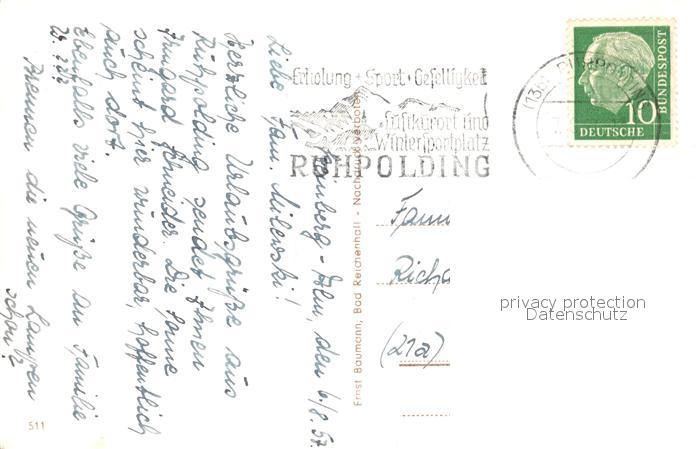 Steinberg-Alm, den 6./8.57.
Liebe Fam. Milewski!
Herzliche Urlaubsgrüße aus
Ruhpolding sendet Ihnen
Irmgard Schneider. Die Sonne
scheint hier wunderbar, hoffentlich
auch dort.
Ebenfalls viele Grüße an Familie
Brennen die neuen Lampen
schon?
Erholung + Sport + Geselligkeit
Luftkurort und
Wintersportplatz
RUHPOLDING
(13b) RUHPOLDING
10
DEUTSCHE
BUNDESPOST
Ernst Baumann, Bad Reichenhall - Nachdruck verboten
Fam
Richa
(21a)
privacy protection
Datenschutz
511